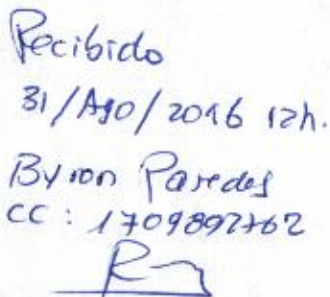 Recibido
31/Ago/2016 12h.
Byron Paredes
CC: 1709892762